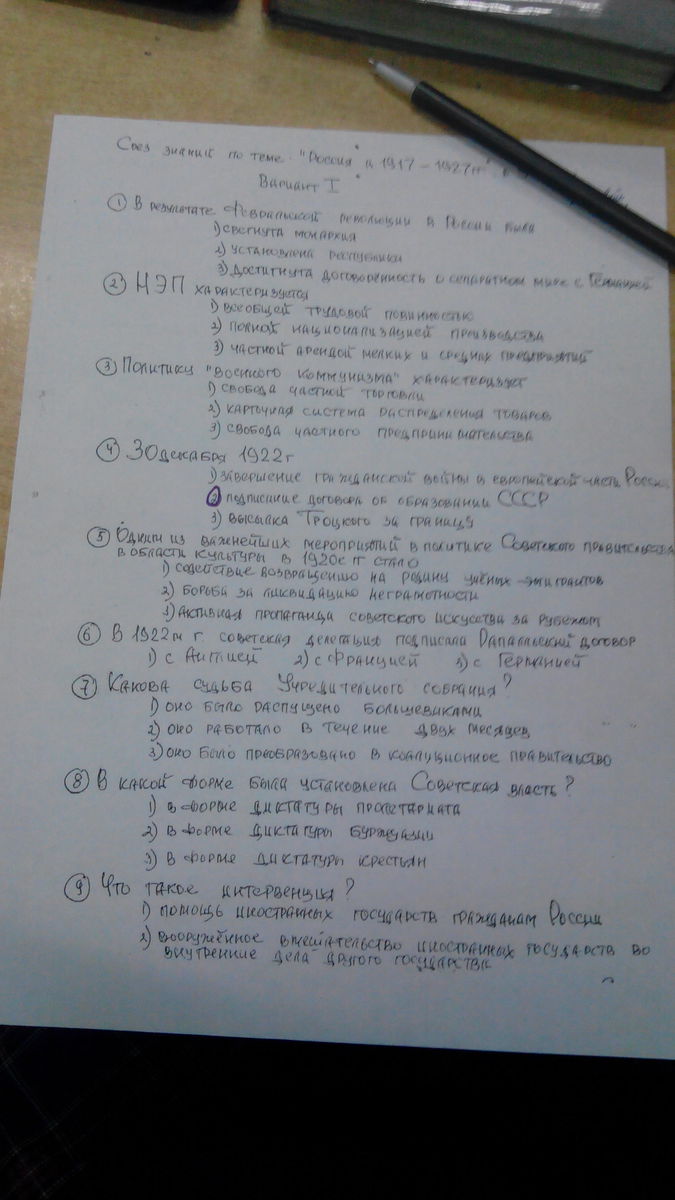 Срез знаний по теме "Россия в 1917 – 1927 гг"
Вариант I
① В результате Февральской революции в России была
1) свегнута монархия
2) установлена республика
3) достигнута договорённость о сепаратном мире с Германией
② НЭП характеризуется
1) всеобщей трудовой повинностью
2) полной национализацией производства
3) частной арендой мелких и средних предприятий
③ Политику "Военного коммунизма" характеризует
1) свобода частной торговли
2) карточная система распределения товаров
3) свобода частного предпринимательства
④ 30 декабря 1922 г
1) завершение гражданской войны в европейской части России
2) подписание договора об образовании СССР
3) высылка Троцкого за границу
⑤ Одним из важнейших мероприятий в политике Советского правительства
в области культуры в 1920е гг стало
1) содействие возвращению на родину учёных-эмигрантов
2) борьба за ликвидацию неграмотности
3) активная пропаганда советского искусства за рубежом
⑥ В 1922м г. советская делегация подписала Рапалльский договор
1) с Англией 2) с Францией 3) с Германией
⑦ Какова судьба Учредительного собрания?
1) оно было распущено большевиками
2) оно работало в течение двух месяцев
3) оно было преобразовано в коалиционное правительство
⑧ В какой форме была установлена Советская власть?
1) в форме диктатуры пролетариата
2) в форме диктатуры буржуазии
3) в форме диктатуры крестьян
⑨ Что такое интервенция?
1) помощь иностранных государств гражданам России
2) вооружённое вмешательство иностранных государств во
внутренние дела другого государства